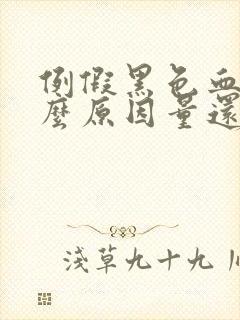 例假黑色血
麼原因量還
淺草九十九